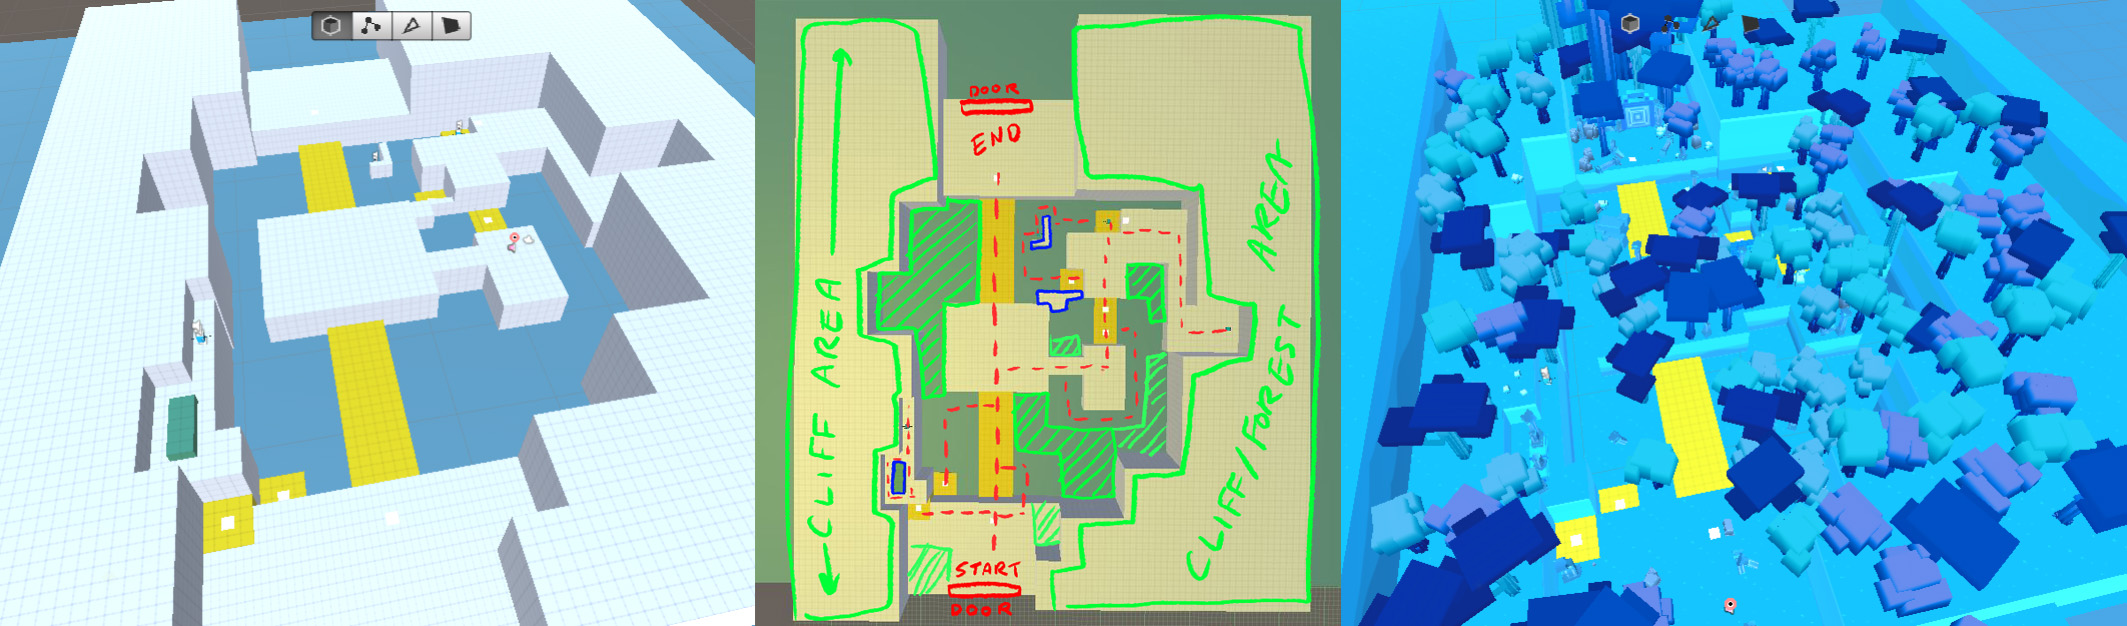 DOOR
END
CLIFF AREA
CLIFF/FOREST AREA
START
DOOR